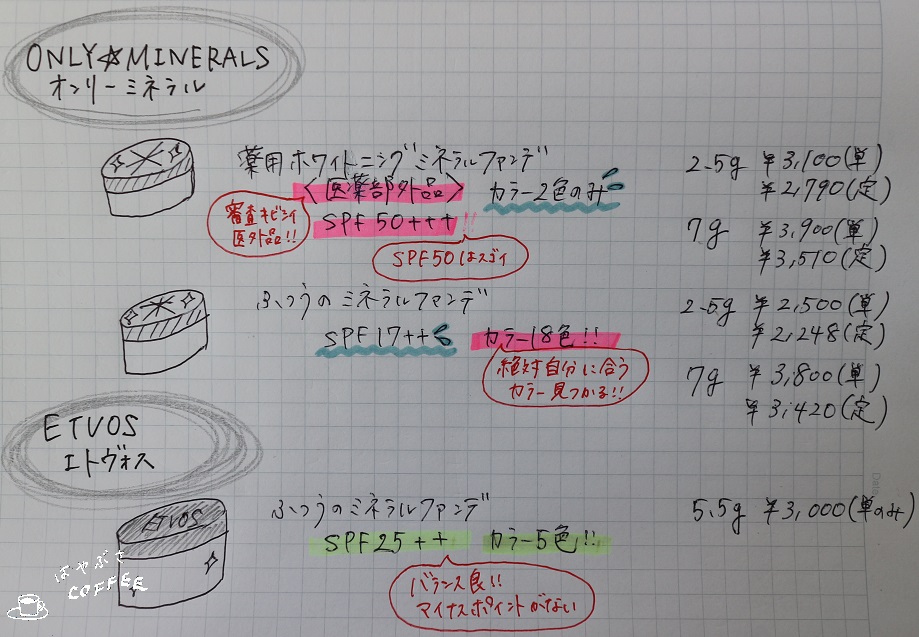 ONLY☆MINERALS
オンリーミネラル
薬用ホワイトニングミネラルファンデ
〈医薬部外品〉 カラー2色のみ
SPF50+++!!
審査キビシイ
医外品!!
SPF50はスゴイ
2.5g ¥3,100(単)
¥2,790(定)
7g ¥3,900(単)
¥3,510(定)
ふつうのミネラルファンデ
SPF17++ カラー18色!!
絶対自分に合う
カラー見つかる!!
2.5g ¥2,500(単)
¥2,248(定)
7g ¥3,800(単)
¥3,420(定)
ETVOS
エトヴォス
ETVOS
ふつうのミネラルファンデ
SPF25++ カラー5色!!
バランス良!!
マイナスポイントがない
5.5g ¥3,000(単のみ)
はやぶさ
COFFEE